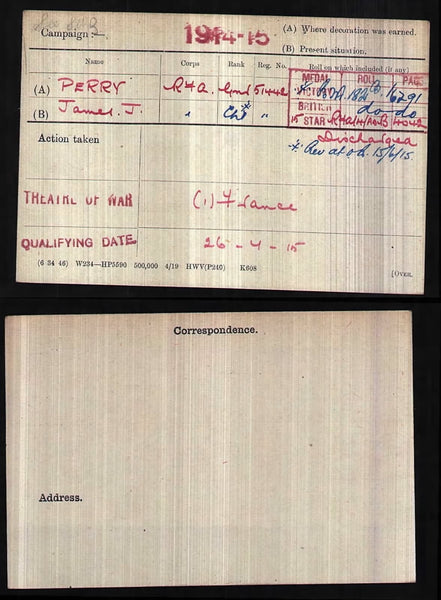 Campaign :— 1914-15 (A) Where decoration was earned.
(B) Present situation.
Name Corps Rank Reg. No. Roll on which included (if any)
MEDAL ROLL PAGE
(A) PERRY RHA 51442 VICTORY RHA 182B 16291
(B) James. J. " " BRITISH do do
15 STAR RHA/4/AVB 4042
Action taken Discharged
* Rev at o d. 15/6/15.
THEATRE OF WAR (1) France
QUALIFYING DATE 26-4-15
(6 34 46) W234—HP5590 500,000 4/19 HWV(P240) K608 [OVER.
Correspondence.
Address.